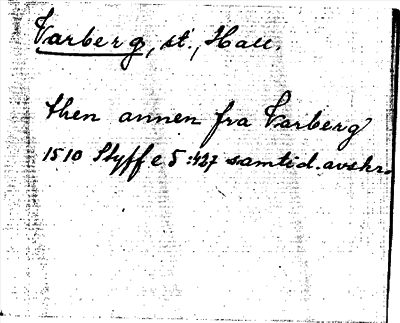 Varberg, st., Hall.
then annen fra Varberg
1510 Styffe 5:427 samtid. avskr.